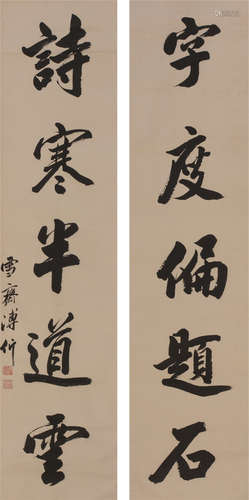 字度偏題石
詩寒半道雲
雪齋溥伒